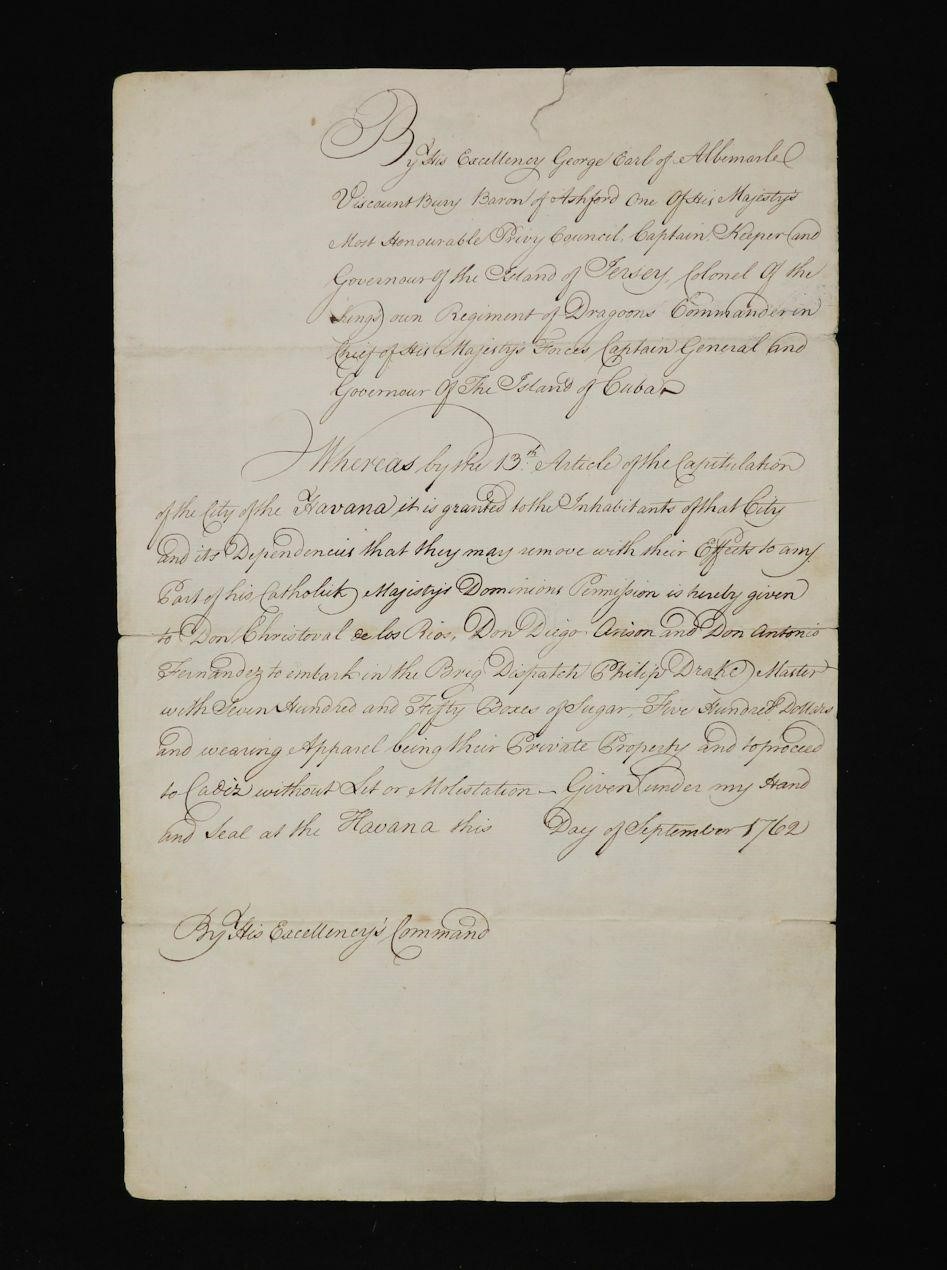 By His Excellency George Earl of Albemarle
Viscount Bury Baron of Ashford One Of His Majesty's
Most Honourable Privy Council, Captain, Keeper and
Governour Of the Island of Jersey, Colonel Of the
Kings own Regiment of Dragoons Commander in
Chief of His Majesty's Forces Captain General and
Governour Of The Island of Cuba
Whereas by the 13.th Article of the Capitulation
of the City of the Havana it is granted to the Inhabitants of that City
and its Dependencies that they may remove with their Effects to any
Part of his Catholick Majesty's Dominions Permission is hereby given
to Don Christoval de los Rios, Don Diego Arison and Don Antonio
Fernandez to embark in the Brig Dispatch Philip Drake Master
with Seven Hundred and Fifty Boxes of Sugar, Five Hundred Dollars
and wearing Apparel being their Private Property and to proceed
to Cadiz without Let or Molestation – Given under my Hand
and Seal at the Havana this Day of September 1762
By His Excellency's Command